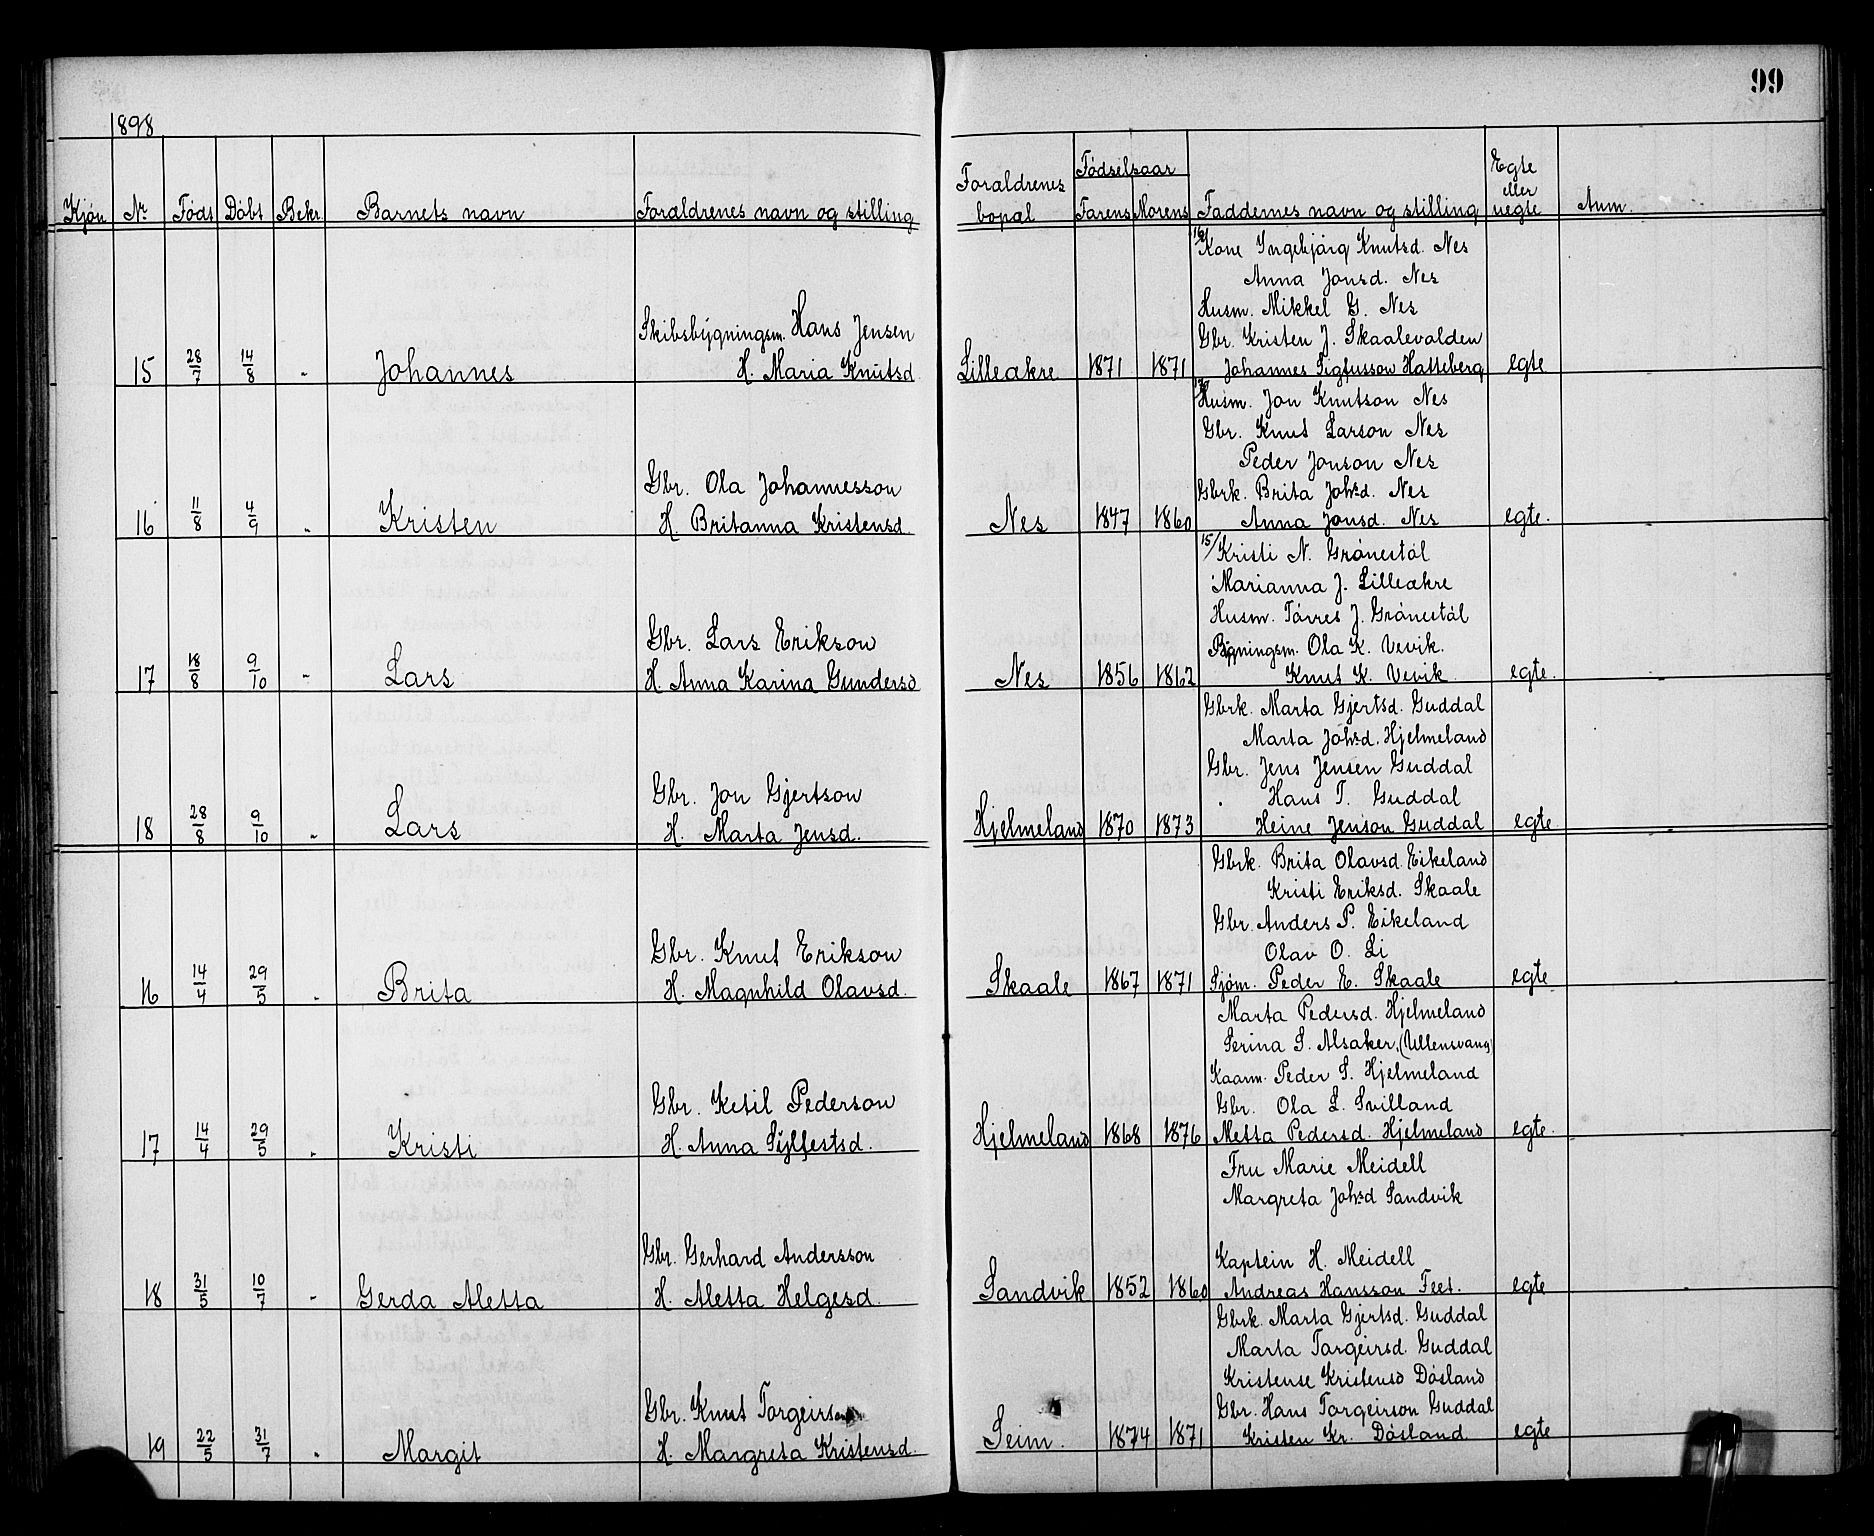 99
1898
Kjön Nr Födt Döbt Bekr. Barnets navn Foraldrenes navn og stilling Foraldrenes bopæl Födselsaar Farens Morens Faddernes navn og stilling Egte eller uegte Anm.
16/ Kone Ingebjörg Knutsd. Nes
Anna Jonsd. Nes
Husm. Mikkel G. Nes
Skibsbygningsm. Hans Jensen Gbr. Kristen J. Skaalevolden
15 28/7 14/8 - Johannes H. Maria Knutsd. Lilleakre 1871 1871 Johannes Sigfusson Hatteberg egte
Husm. Jon Knutson Nes
Gbr. Knut Larson Nes
Peder Jonson Nes
Gbr. Ola Johannesson Gbrk. Brita Johsd. Nes
16 11/8 4/9 - Kristen H. Britanna Kristensd. Nes 1847 1860 Anna Jonsd. Nes egte.
15/ Kristi N. Grönestöl
Marianna J. Lilleakre
Husm. Törres J. Grönestöl
Gbr. Lars Erikson Bygningsm. Ola K. Vevik.
17 18/8 9/10 - Lars H. Anna Karina Gundersd Nes 1856 1862 Knut K. Vevik egte.
Gbrk. Marta Gjertsd. Guddal
Marta Johsd. Hjelmeland
Gbr. Jens Jensen Guddal
Gbr. Jon Gjertson Hans T. Guddal
18 28/8 9/10 - Lars H. Marta Jensd. Hjelmeland 1870 1873 Heine Jenson Guddal egte
Gbrk. Brita Olavsd. Eikeland
Kristi Eriksd. Skaale
Gbr. Anders P. Eikeland
Gbr. Knut Erikson Olav O. Li
16 14/4 29/5 - Brita H. Magnhild Olavsd. Skaale 1867 1871 Sjöm. Peder E. Skaale egte
Marta Pedersd. Hjelmeland
Serina S. Alsaker, (Ullensvang)
Kaarm. Peder S. Hjelmeland
Gbr. Ketil Pederson Gbr. Ola L. Svilland
17 14/4 29/5 - Kristi H. Anna Sylfestsd. Hjelmeland 1868 1876 Metta Pedersd. Hjelmeland egte.
Fru Marie Meidell
Margreta Johsd Sandvik
Gbr. Gerhard Andersson Kaptein H. Meidell
18 31/5 10/7 - Gerda Aletta H. Aletta Helgesd. Sandvik 1852 1860 Andreas Hansson Feet. egte
Gbrk. Marta Gjertsd. Guddal
Marta Torgeirsd. Guddal
Kristense Kristensd Dösland
Gbr. Knut Torgeirson Gbr. Hans Torgeirson Guddal
19 22/5 31/7 - Margit H. Margreta Kristensd. Seim. 1874 1871 Kristen Kr. Dösland egte